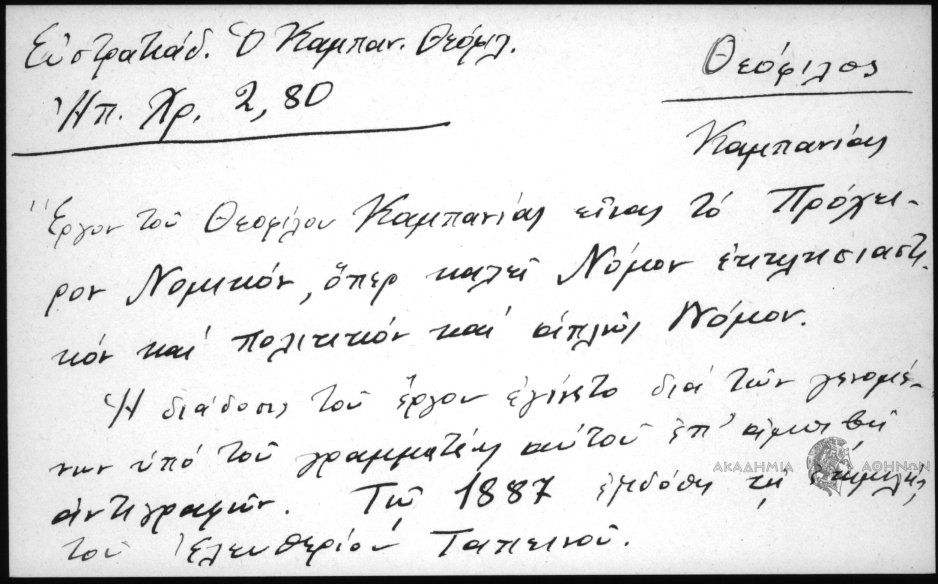 Εὐστρατιάδ. Ὁ Καμπαν. Θεόφιλ.
Ἠπ. Χρ. 2, 80
Θεόφιλος
Καμπανίας
Ἔργον τοῦ Θεοφίλου Καμπανίας εἶναι τό Πρόχει-
ρον Νομικόν, ὅπερ καλεῖ Νόμον ἐκκλησιαστι-
κόν καί πολιτικόν καί ἁπλῶς Νόμον.
Ἡ διάδοσις τοῦ ἔργου ἐγίνετο διά τῶν γενομέ-
νων ὑπό τοῦ γραμματέως αὐτοῦ ἐπ' ἀμοιβῇ
ἀντιγραφῶν. Τῷ 1887 ἐξεδόθη τῇ ἐπιμελείᾳ
τοῦ Ἐλευθερίου Ταπεινοῦ.
ΑΚΑΔΗΜΙΑ ΑΘΗΝΩΝ